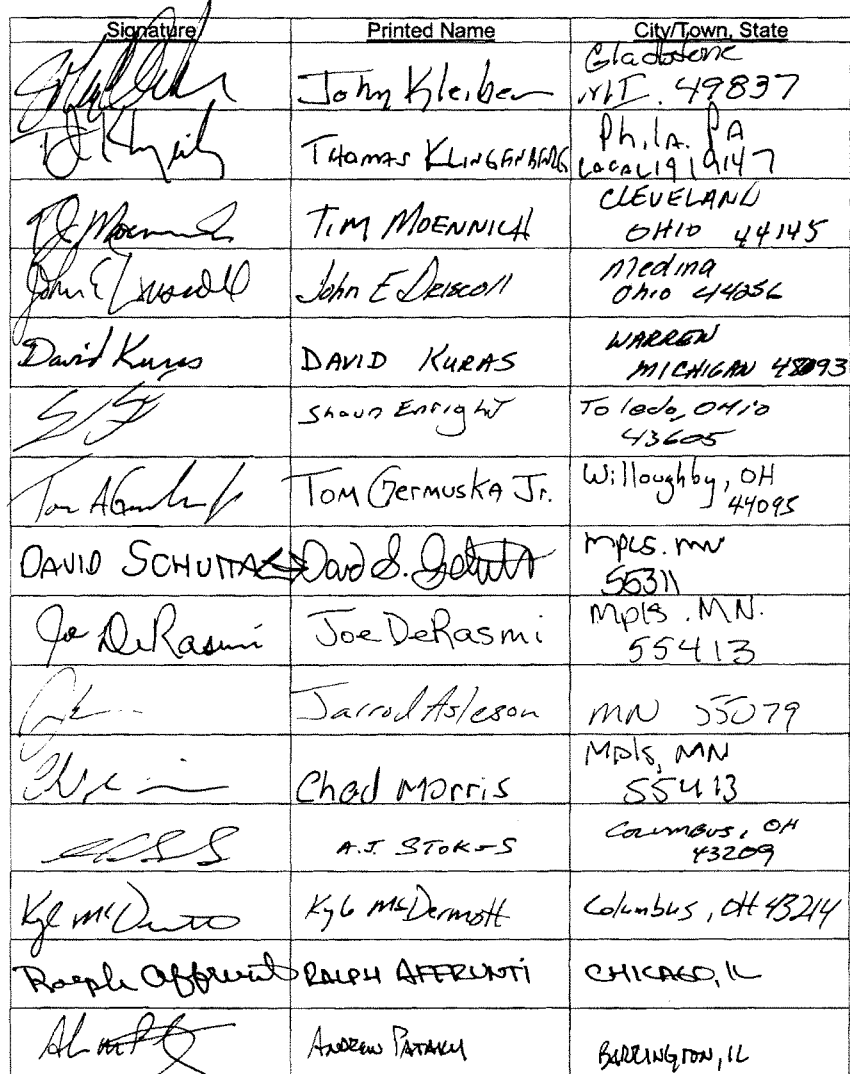 Signature Printed Name City/Town, State
John Kleiber Gladstone
MI. 49837
THOMAS KLINGENBERG Phila. PA
LOCAL 19 19147
TIM MOENNICH CLEVELAND
OHIO 44145
John E Driscoll Medina
Ohio 44256
David Kuras DAVID KURAS WARREN
MICHIGAN 48093
Shaun Enright Toledo, OHio
43605
TOM Germuska Jr. Willoughby, OH
44095
DAVID SCHUTTA mpls. mn
55311
Joe DeRasmi Joe DeRasmi Mpls. MN.
55413
Jarrod Asleson MN 55079
Chad Morris Mpls, MN
55413
A.J. STOKES Columbus, OH
43209
Kyle McDermott Columbus, OH 43214
Ralph Affrunti RALPH AFFRUNTI CHICAGO, IL
ANDREW PATAKY BARRINGTON, IL